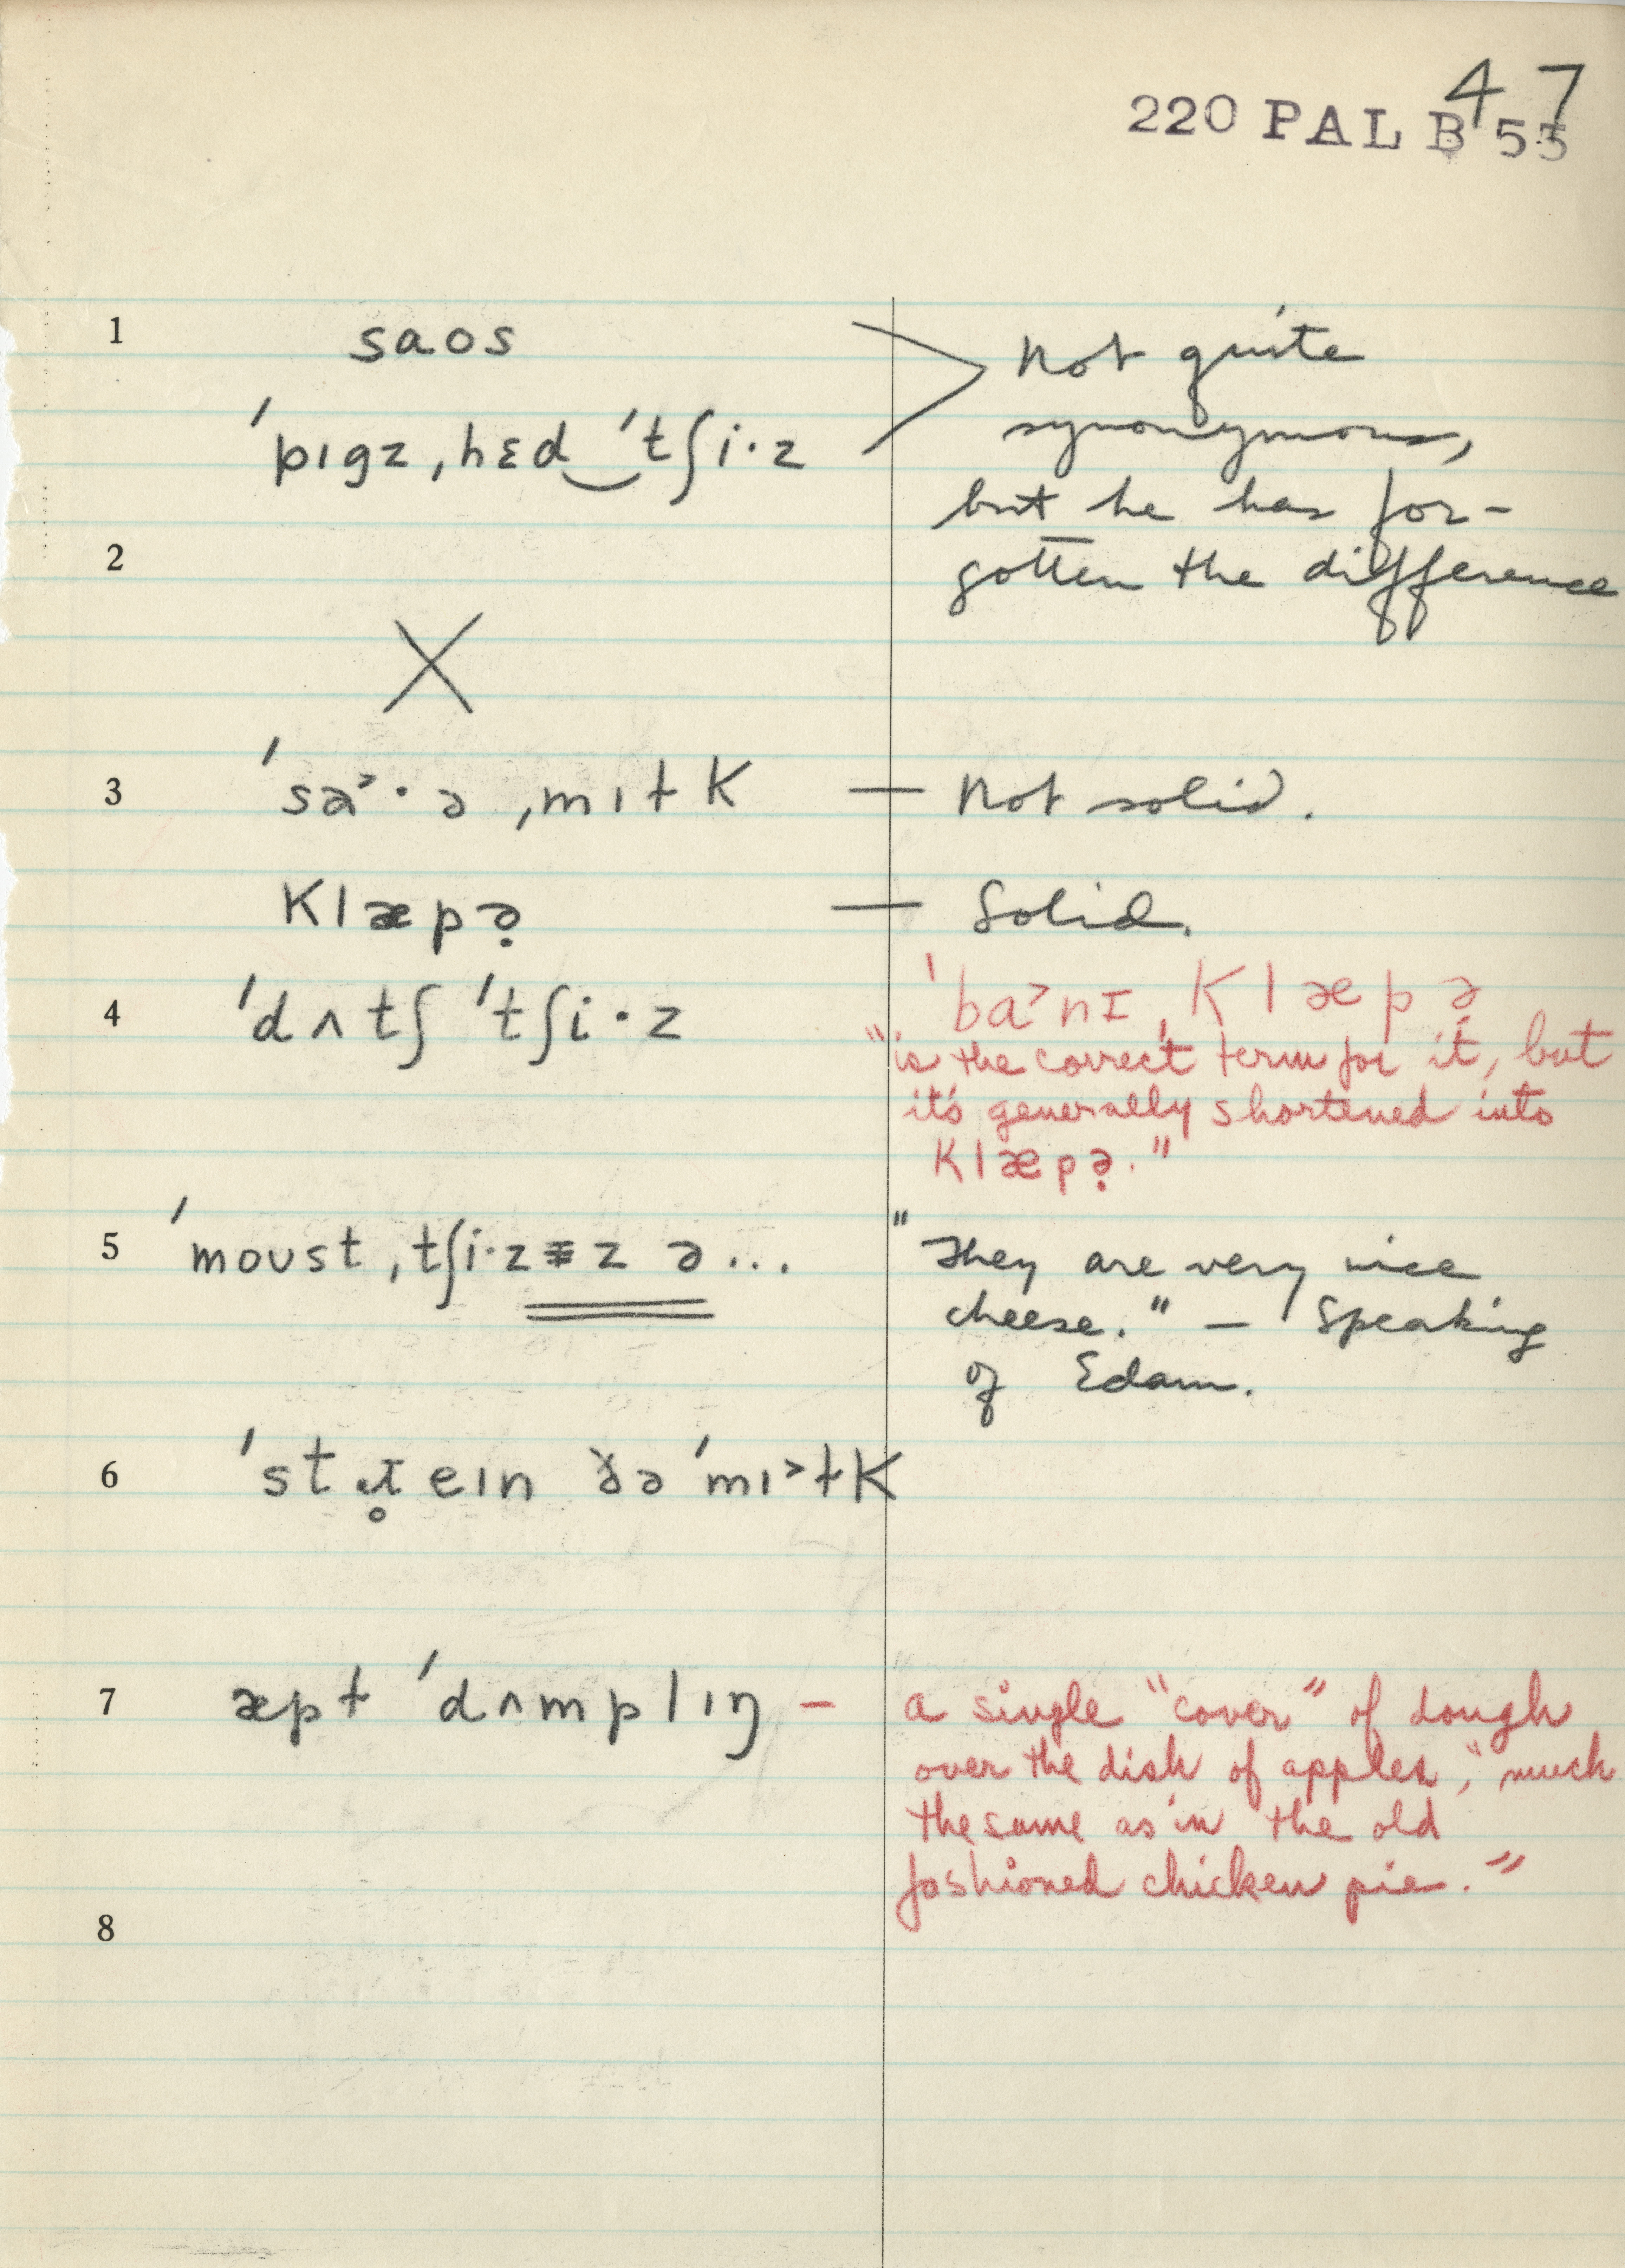 47
220 PAL B 55
1 saos
ˈpɪgz ˌhɛd‿ˈtʃi·z
Not quite
synonymous,
but he has for-
gotten the difference
2
X
3 ˈsa˃·ə ˌmɪɫk — Not solid.
klæpə̣ — Solid.
4 ˈdʌtʃ ˈtʃi·z
ˈba˃nɪ ˌklæpə
"is the correct term for it, but
it's generally shortened into
klæpə̣."
5 ˈmoʊst ˌtʃi·z z ə...
"They are very nice
cheese." — Speaking
of Edam.
6 ˈstɹ̥eɪn ðə ˈmɪ˃ɫk
7 æpɫ ˈdʌmplɪŋ –
a single "cover" of dough
over the dish of apples, "much
the same as in the old
fashioned chicken pie."
8